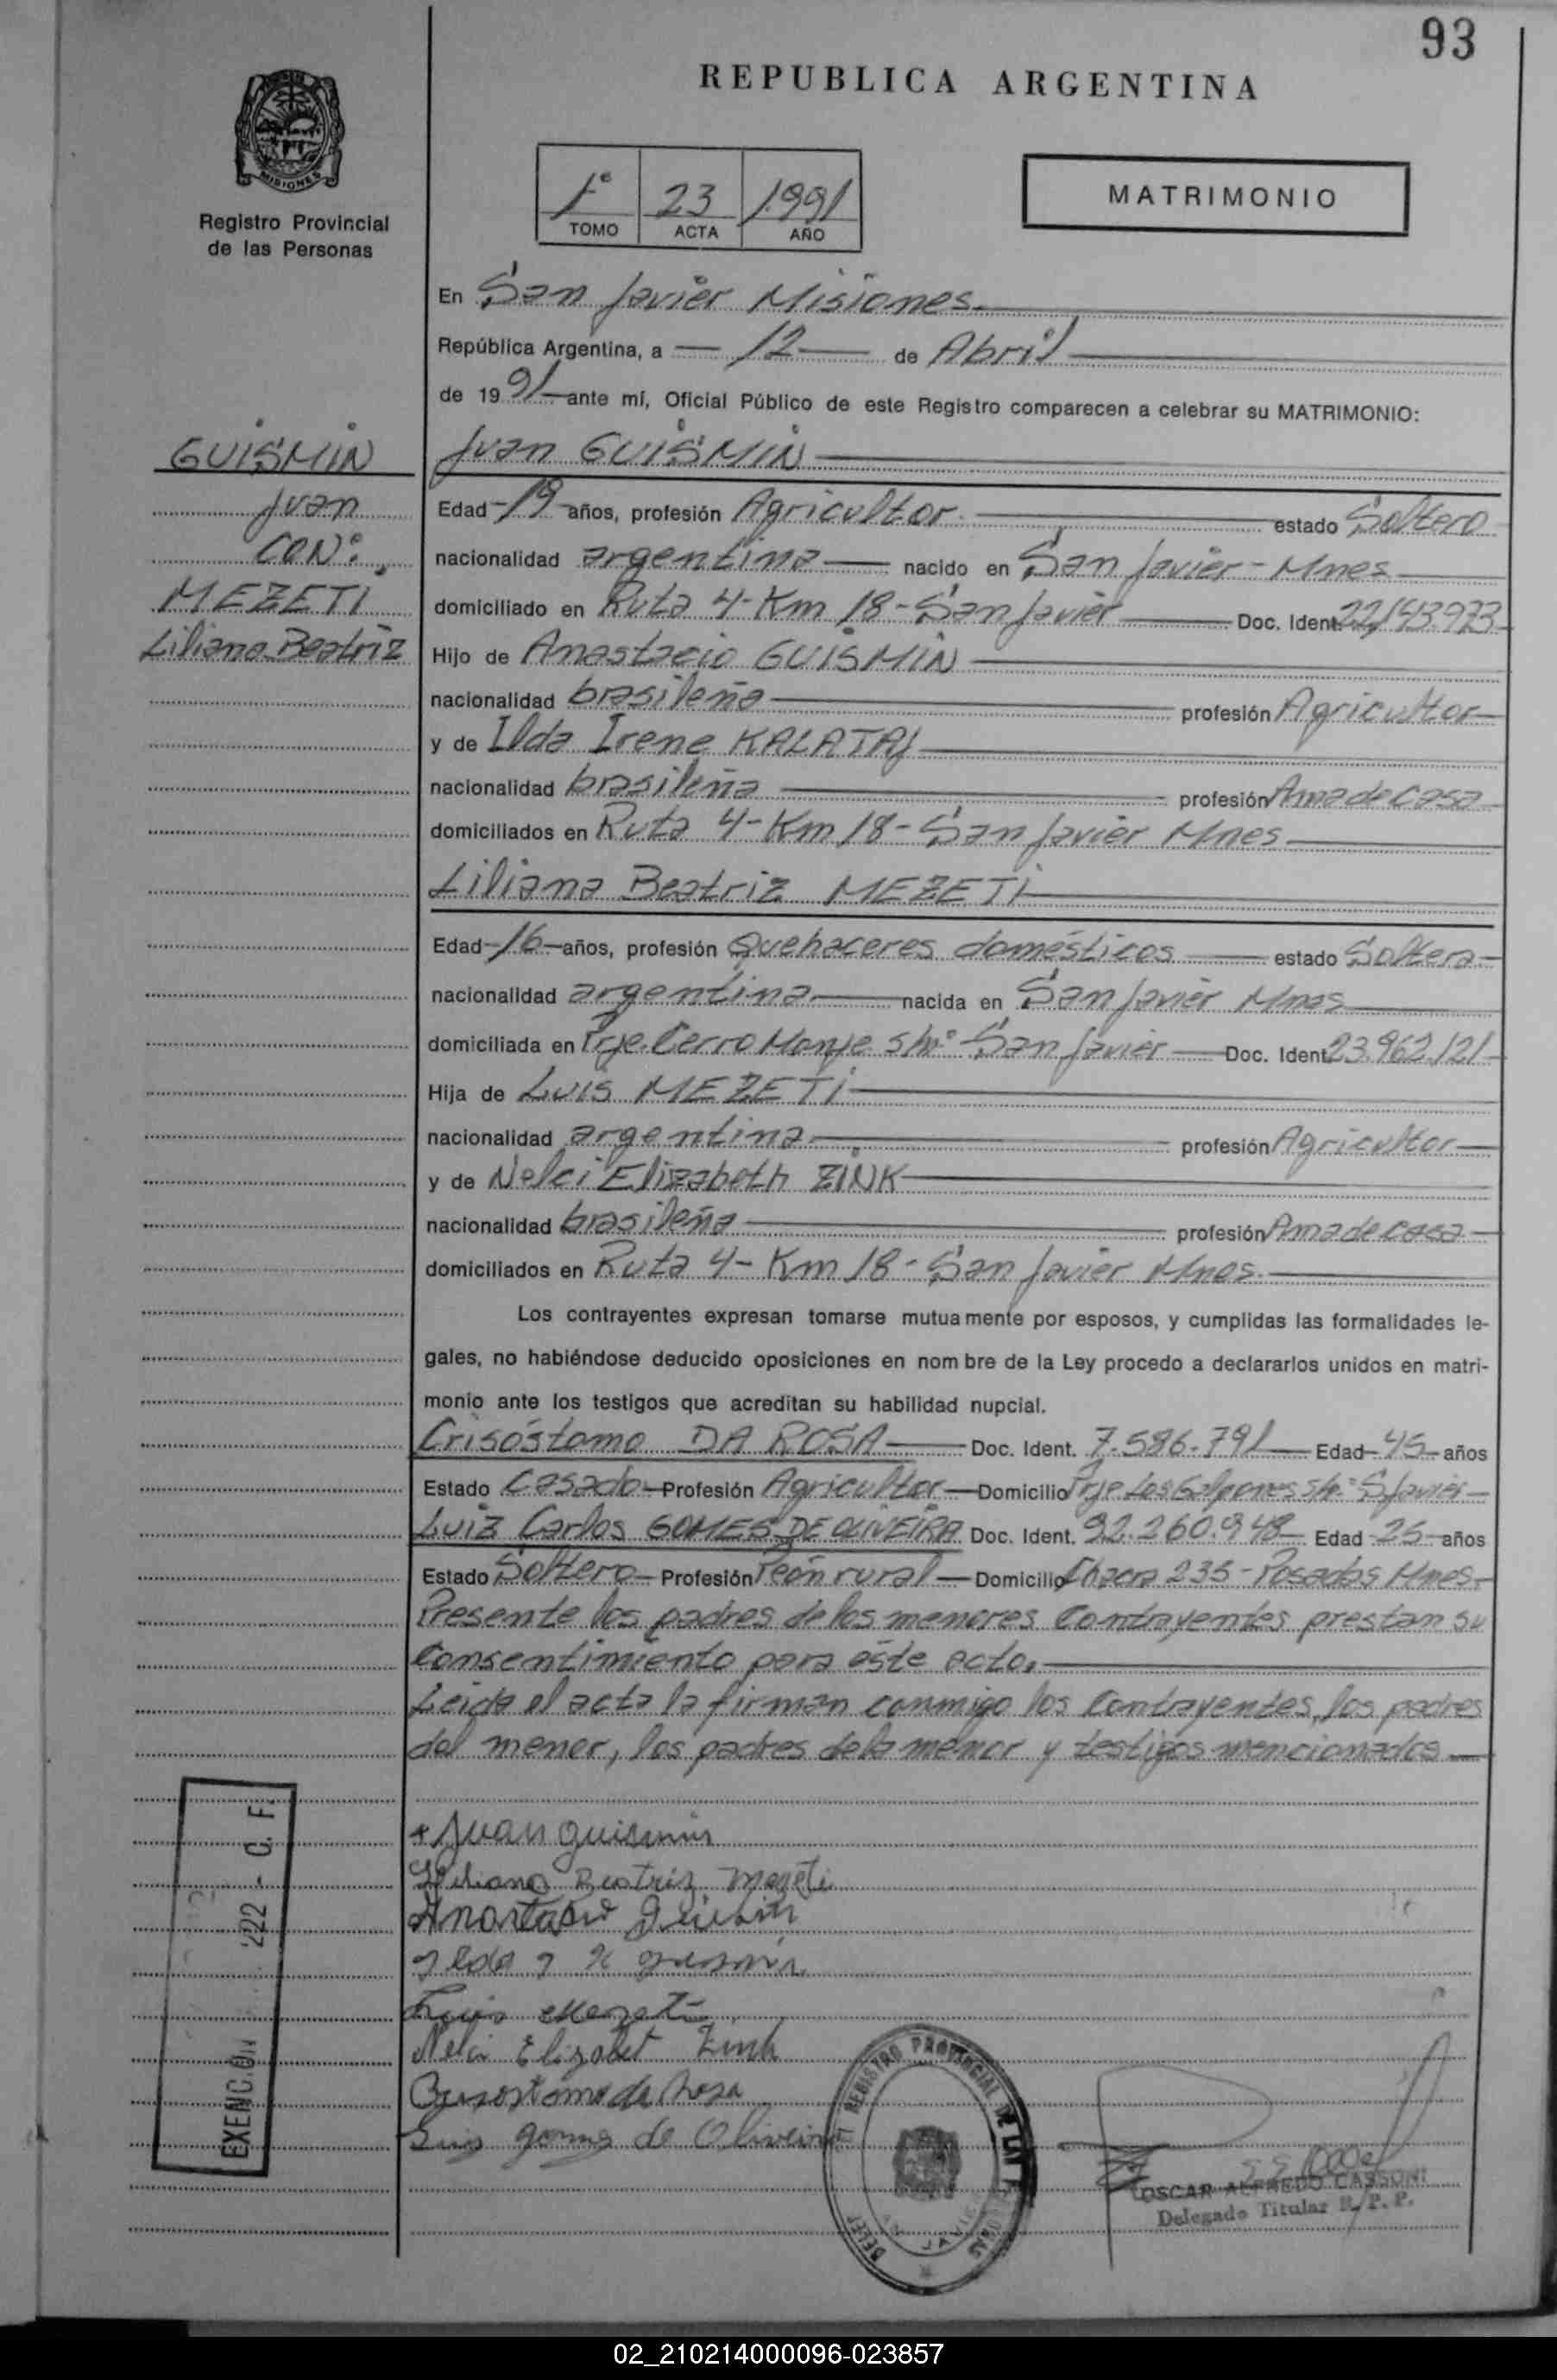 93
REPUBLICA ARGENTINA
MISIONES
Registro Provincial
de las Personas
1º 23 1991
TOMO ACTA AÑO
MATRIMONIO
En San Javier Misiones
República Argentina, a 12 de Abril
de 1991 ante mí, Oficial Público de este Registro comparecen a celebrar su MATRIMONIO:
GUISMIN
Juan
CON:
MEZETI
Liliana Beatriz
Juan GUISMIN
Edad 19 años, profesión Agricultor estado Soltero
nacionalidad argentina nacido en San Javier - Mnes
domiciliado en Ruta 4 - Km 18 - San Javier Doc. Ident. 22.143.973
Hijo de Anastacio GUISMIN
nacionalidad brasileña profesión Agricultor
y de Ilda Irene KALATAJ
nacionalidad brasileña profesión Ama de casa
domiciliados en Ruta 4 - Km 18 - San Javier Mnes
Liliana Beatriz MEZETI
Edad 16 años, profesión Quehaceres domésticos estado Soltera
nacionalidad argentina nacida en San Javier Mnes
domiciliada en Pje. Cerro Monje s/nº San Javier Doc. Ident. 23.962.121
Hija de Luis MEZETI
nacionalidad argentina profesión Agricultor
y de Nelci Elizabeth ZINK
nacionalidad brasileña profesión Ama de casa
domiciliados en Ruta 4 - Km 18 - San Javier Mnes.
Los contrayentes expresan tomarse mutuamente por esposos, y cumplidas las formalidades le-
gales, no habiéndose deducido oposiciones en nombre de la Ley procedo a declararlos unidos en matri-
monio ante los testigos que acreditan su habilidad nupcial.
Crisóstomo DA ROSA Doc. Ident. 7.586.791 Edad 45 años
Estado Casado Profesión Agricultor Domicilio Pje Los Galpones s/nº S. Javier
Luiz Carlos GOMES DE OLIVEIRA Doc. Ident. 92.260.948 Edad 25 años
Estado Soltero Profesión Peón rural Domicilio Chacra 235 - Posadas Mnes.
Presente los padres de los menores Contrayentes prestan su
Consentimiento para éste acto.
Leida el acta la firman conmigo los Contrayentes, los padres
del menor, los padres de la menor y testigos mencionados
Juan guismin
Liliana Beatriz Mezeti
Luis Mezeti
Nelci Elizabet Zink
Crisostomo da rosa
Luiz gomes de Oliveira
EXENC.ON 222 - C. F.
REGISTRO PROVINCIAL DE LAS
OSCAR ALFREDO CASSONI
Delegado Titular R. P. P.
02_210214000096-023857